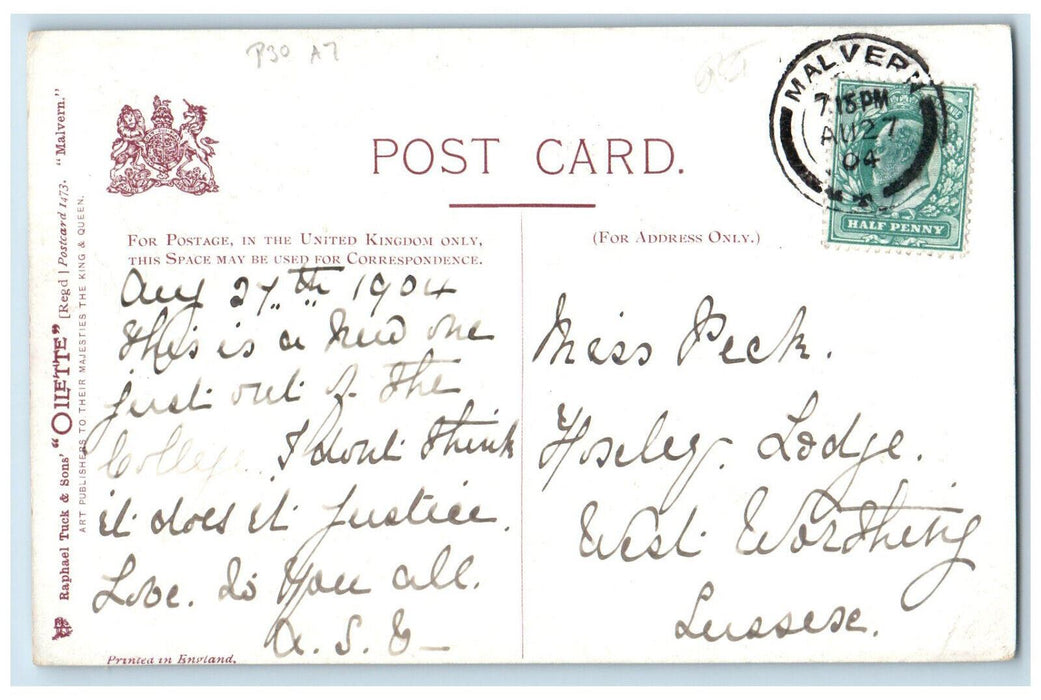 P30 A7
MALVERN
7.15 PM
AU 27
04
HALF PENNY
POST CARD.
FOR POSTAGE, IN THE UNITED KINGDOM ONLY,
THIS SPACE MAY BE USED FOR CORRESPONDENCE.
(FOR ADDRESS ONLY.)
Aug 27th 1904
This is a New one
just out of the
College. I dont think
it does it justice.
Love. to you all.
A. S. E
Miss Peck.
Hoseley. Lodge.
West. Worthing
Sussex.
Raphael Tuck & Sons' "OILETTE" [Regd] Postcard 1473. "Malvern."
ART PUBLISHERS TO THEIR MAJESTIES THE KING & QUEEN.
Printed in England.